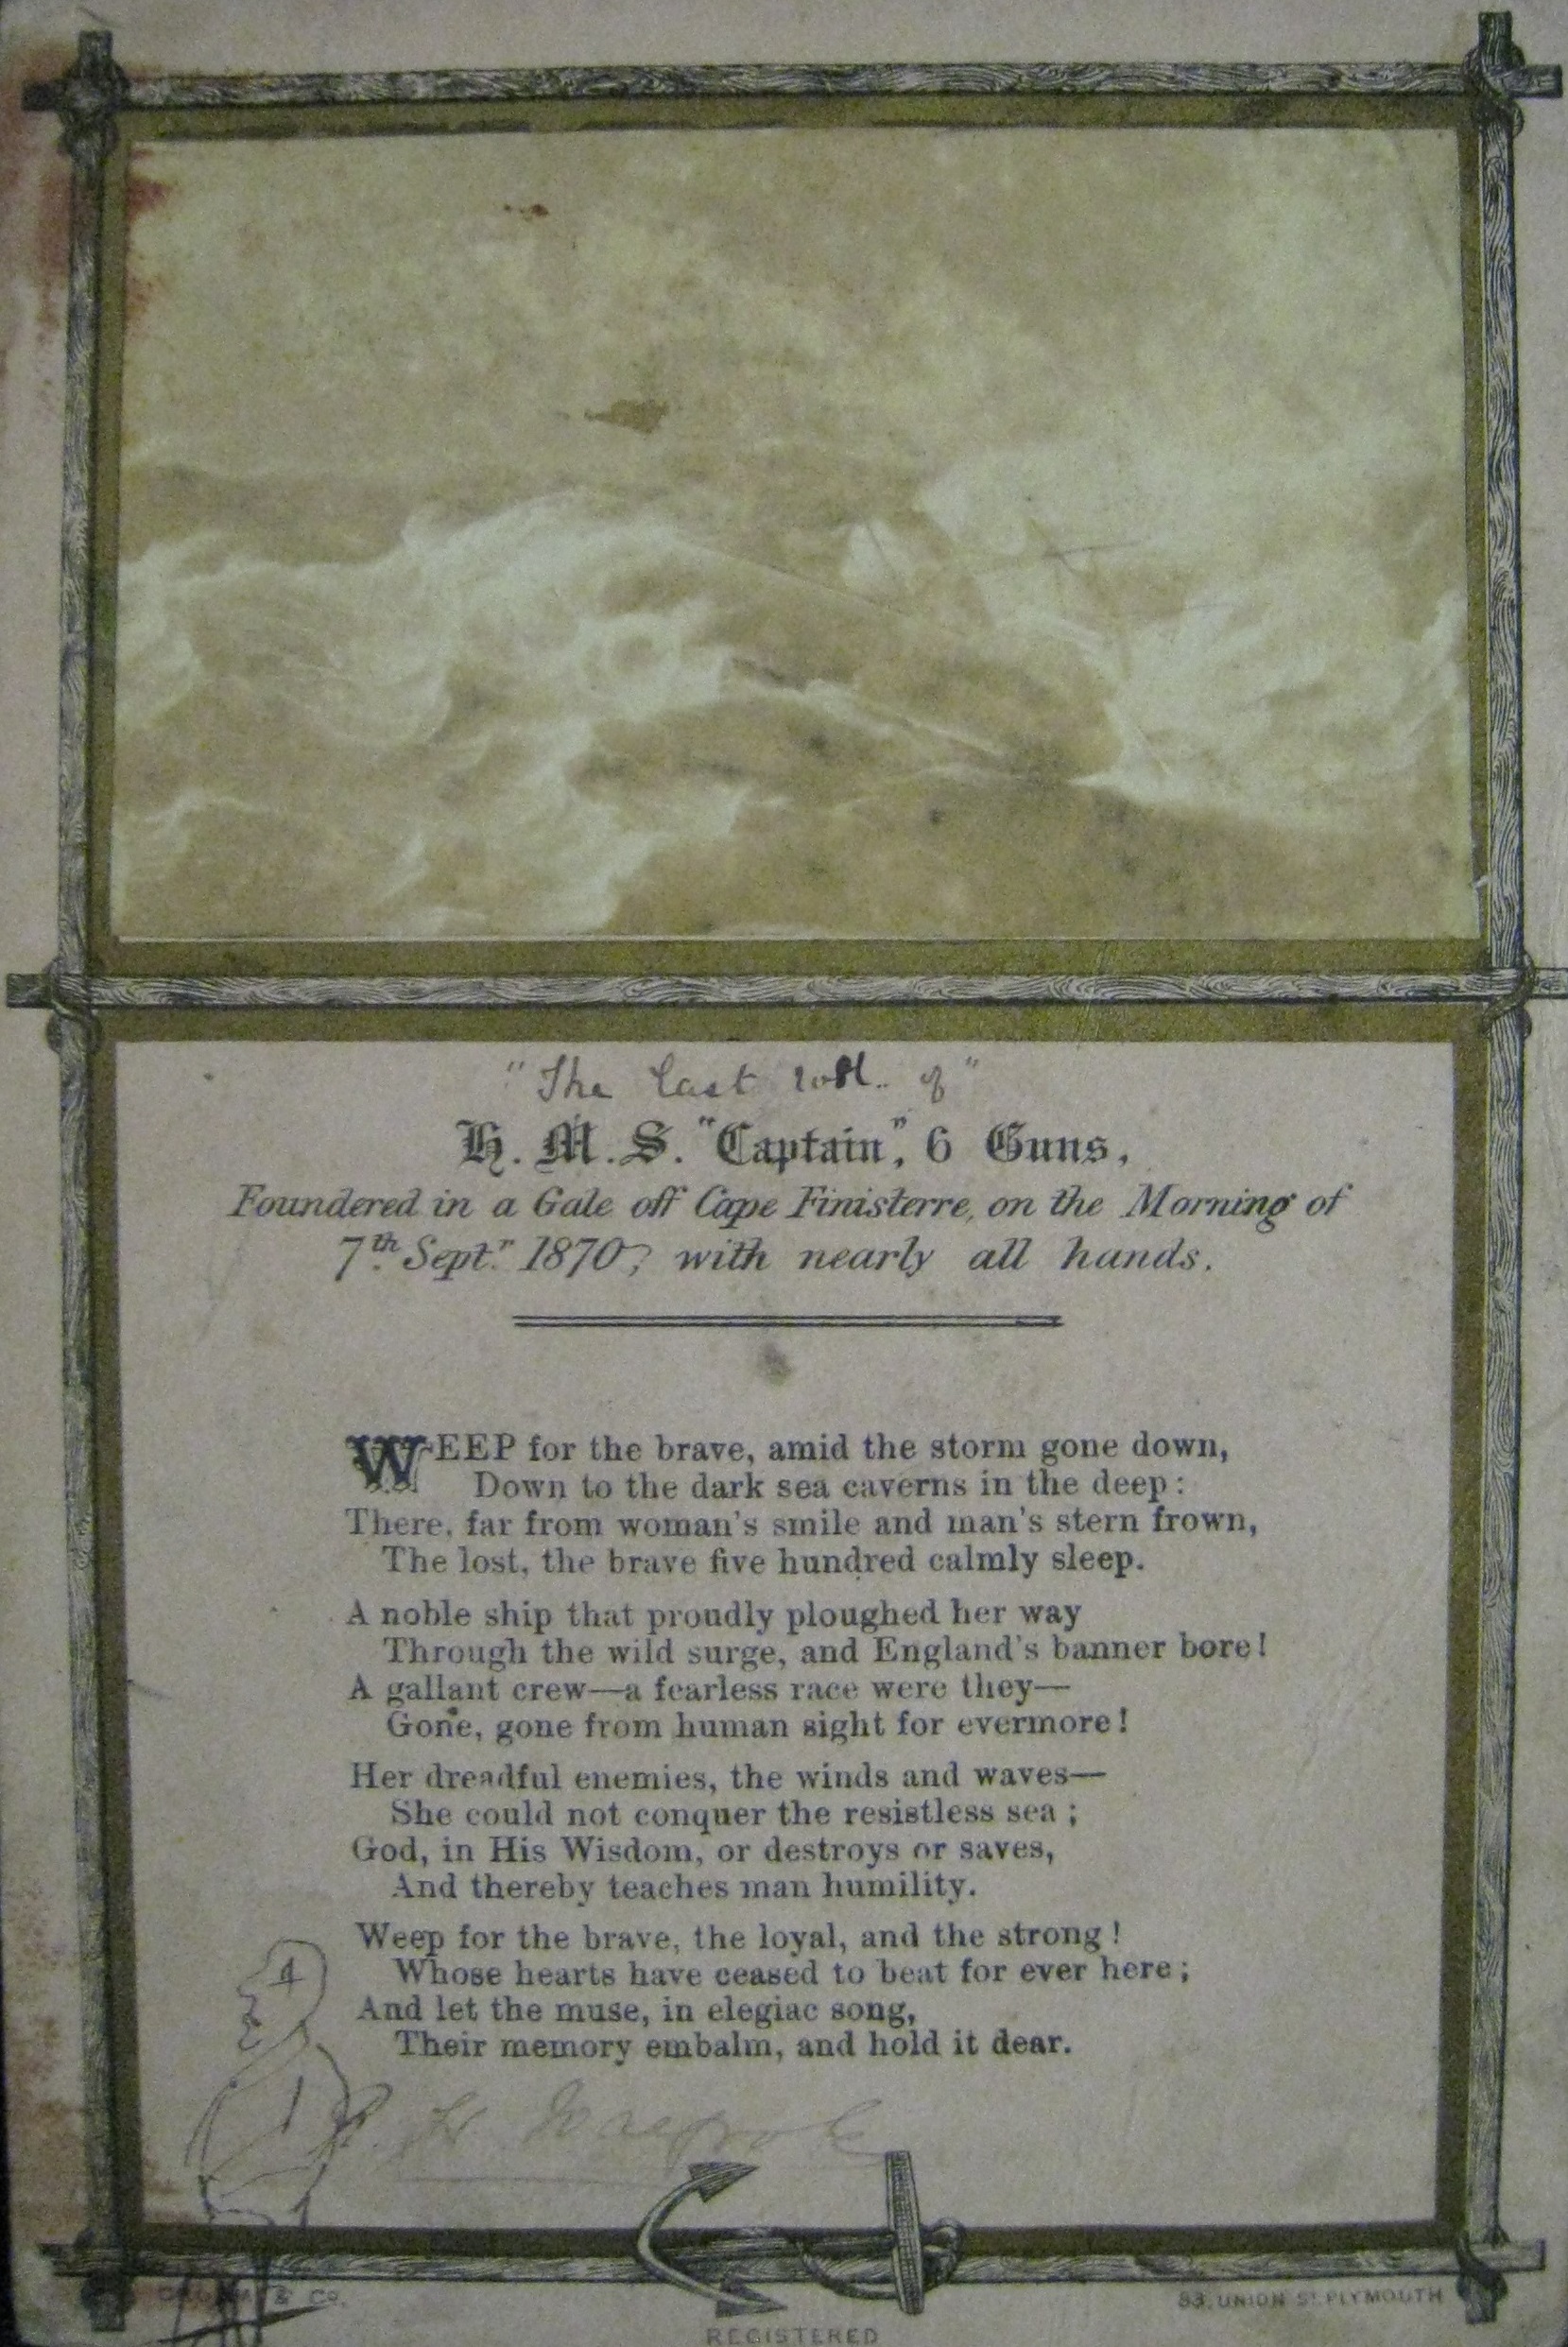 "The last roll.. of"
H. M. S. "Captain", 6 Guns,
Foundered in a Gale off Cape Finisterre, on the Morning of
7th. Septr. 1870; with nearly all hands.
WEEP for the brave, amid the storm gone down,
Down to the dark sea caverns in the deep:
There, far from woman's smile and man's stern frown,
The lost, the brave five hundred calmly sleep.
A noble ship that proudly ploughed her way
Through the wild surge, and England's banner bore!
A gallant crew—a fearless race were they—
Gone, gone from human sight for evermore!
Her dreadful enemies, the winds and waves—
She could not conquer the resistless sea;
God, in His Wisdom, or destroys or saves,
And thereby teaches man humility.
Weep for the brave, the loyal, and the strong!
Whose hearts have ceased to beat for ever here;
And let the muse, in elegiac song,
Their memory embalm, and hold it dear.
4
1
& Co.
83, UNION ST. PLYMOUTH
REGISTERED